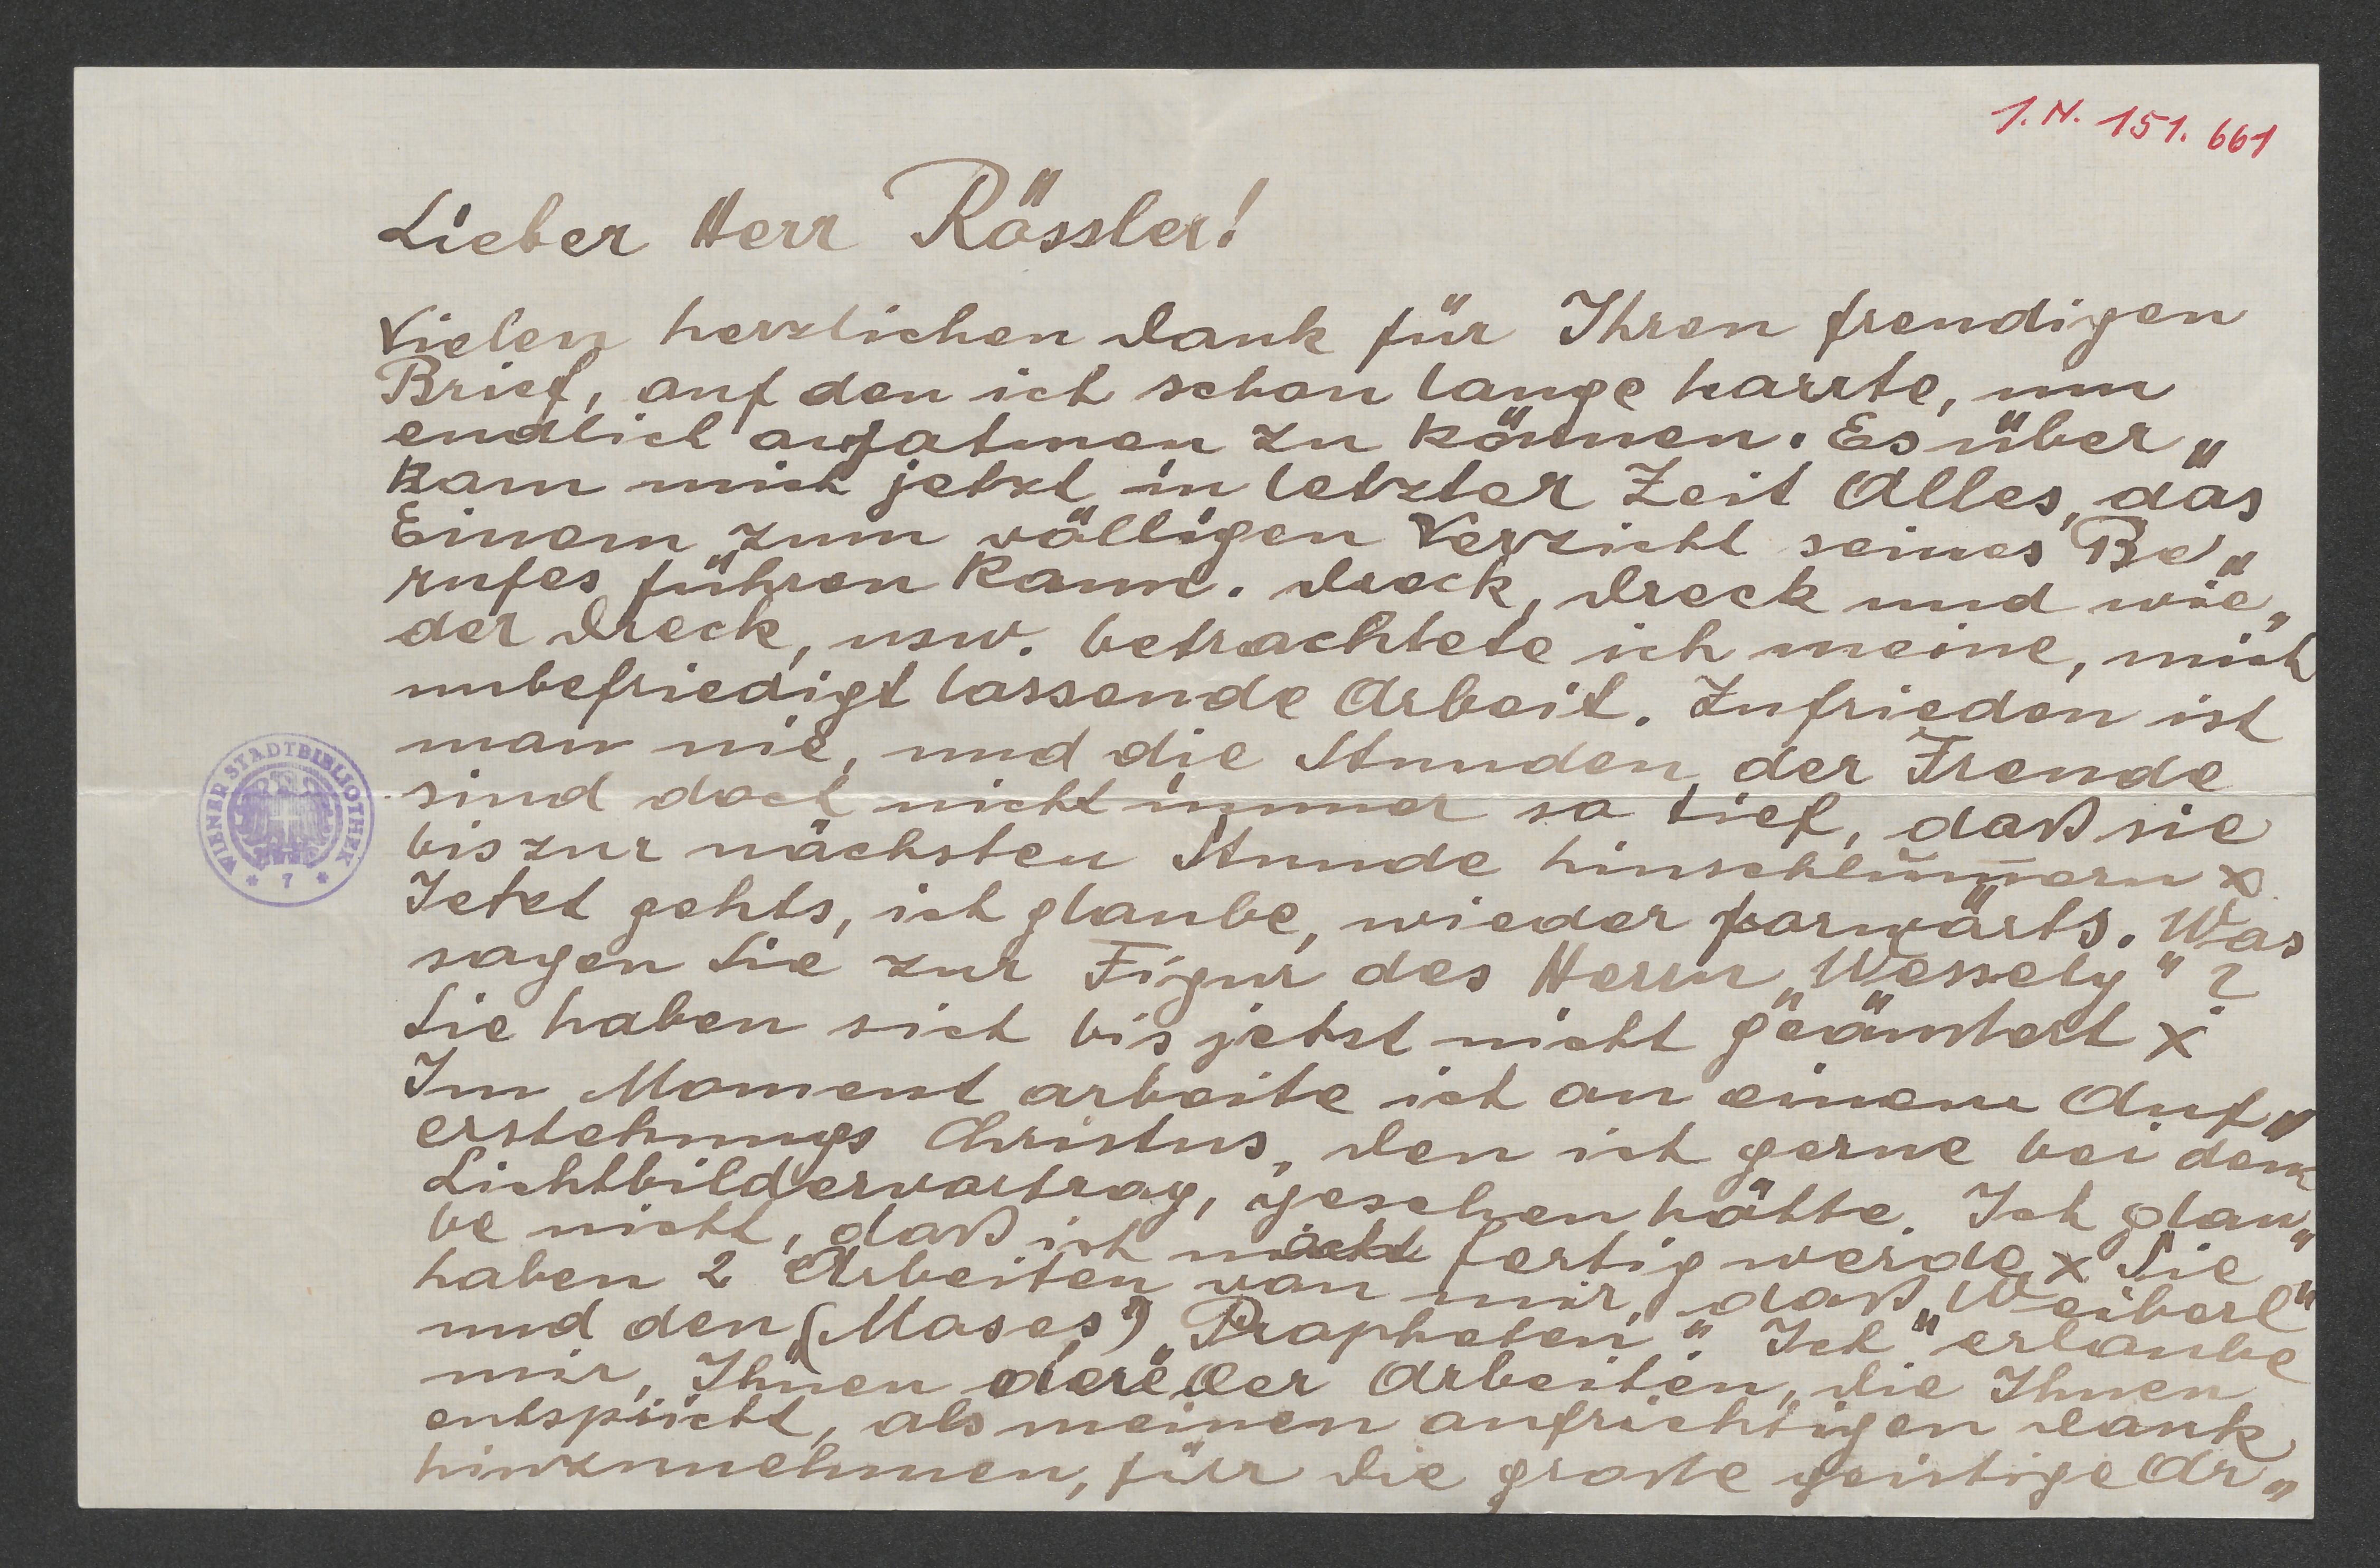 I. N. 151. 661
Lieber Herr Rössler!
Vielen herzlichen Dank für Ihren freudigen
Brief, auf den ich schon lange harrte, um
endlich aufatmen zu können. Es über„
kam mich jetzt in letzter Zeit Alles, das
Einem zum völligen Verzicht seines Be„
rufes führen kann. Dreck, Dreck und wie„
der Dreck, usw. betrachtete ich meine, mich
unbefriedigt lassende Arbeit. Zufrieden ist
man nie, und die Stunden der Freude
sind doch nicht immer so tief, daß sie
bis zur nächsten Stunde hinschlum̅ern x
Jetzt gehts, ich glaube, wieder vorwärts. Was
sagen Sie zur Figur des Herrn „Wessely" ?
Sie haben sich bis jetzt nicht geäußert x
Im Moment arbeite ich an einem Auf„
erstehungs Christus, den ich gerne bei dem
Lichtbildervortrag, gesehen hätte. Ich glau„
be nicht, daß ich fertig werde x Sie
haben 2 Arbeiten von mir, daß „Weiberl"
und den (Moses") „Propheten". Ich erlaube
mir, Ihnen der Arbeiten, die Ihnen
entspricht, als meinen aufrichtigen Dank
hinzunehmen, für die große geistige Ar„
WIENER STADTBIBLIOTHEK
* 7 *